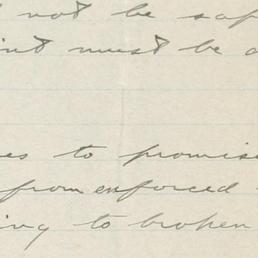 not be saf
must be
es to promise
from enforced
ing to broken